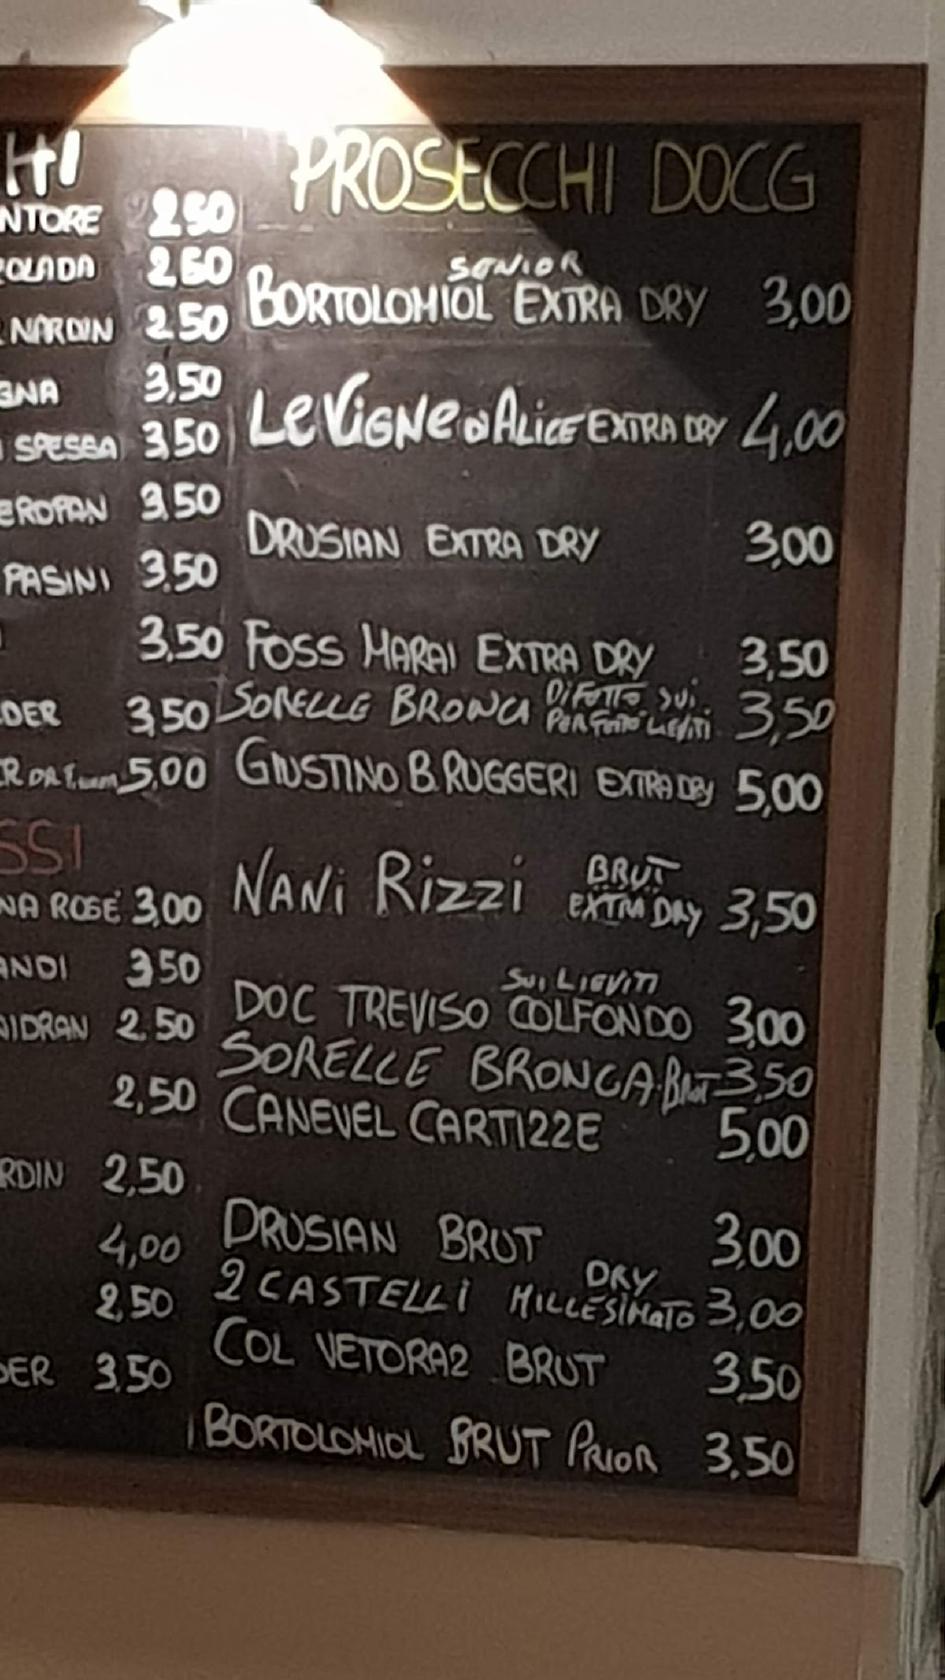 HI
NTORE 2.50
OLADA 2.60
NARDIN 2.50
GNA 3,50
SPESSA 3,50
EROPAN 3,50
PASINI 3,50
3,50
DER 3,50
R DA 5,00
SSI
NA ROSÉ 3,00
ANDI 3,50
NIDRAN 2.50
2,50
RDIN 2,50
4,00
2,50
DER 3,50
PROSECCHI DOCG
SENIOR
BORTOLOMIOL EXTRA DRY 3,00
Le ViGNe Di ALiCE EXTRA DRY 4,00
DRUSIAN EXTRA DRY 3,00
FOSS MARAI EXTRA DRY 3,50
SORELLE BRONCA DIFETTO SUI PERFETTO LIEVITI 3,50
GIUSTINO B. RUGGERI EXTRA DRY 5,00
NANi Rizzi BRUT EXTRA DRY 3,50
SUI LIEVITI
DOC TREVISO COLFONDO 3,00
SORELLE BRONCA Brut 3,50
CANEVEL CARTIZZE 5,00
DRUSIAN BRUT 3,00
2 CASTELLI DRY MILLESIMATO 3,00
COL VETORAZ BRUT 3,50
BORTOLOMIOL BRUT PRIOR 3,50